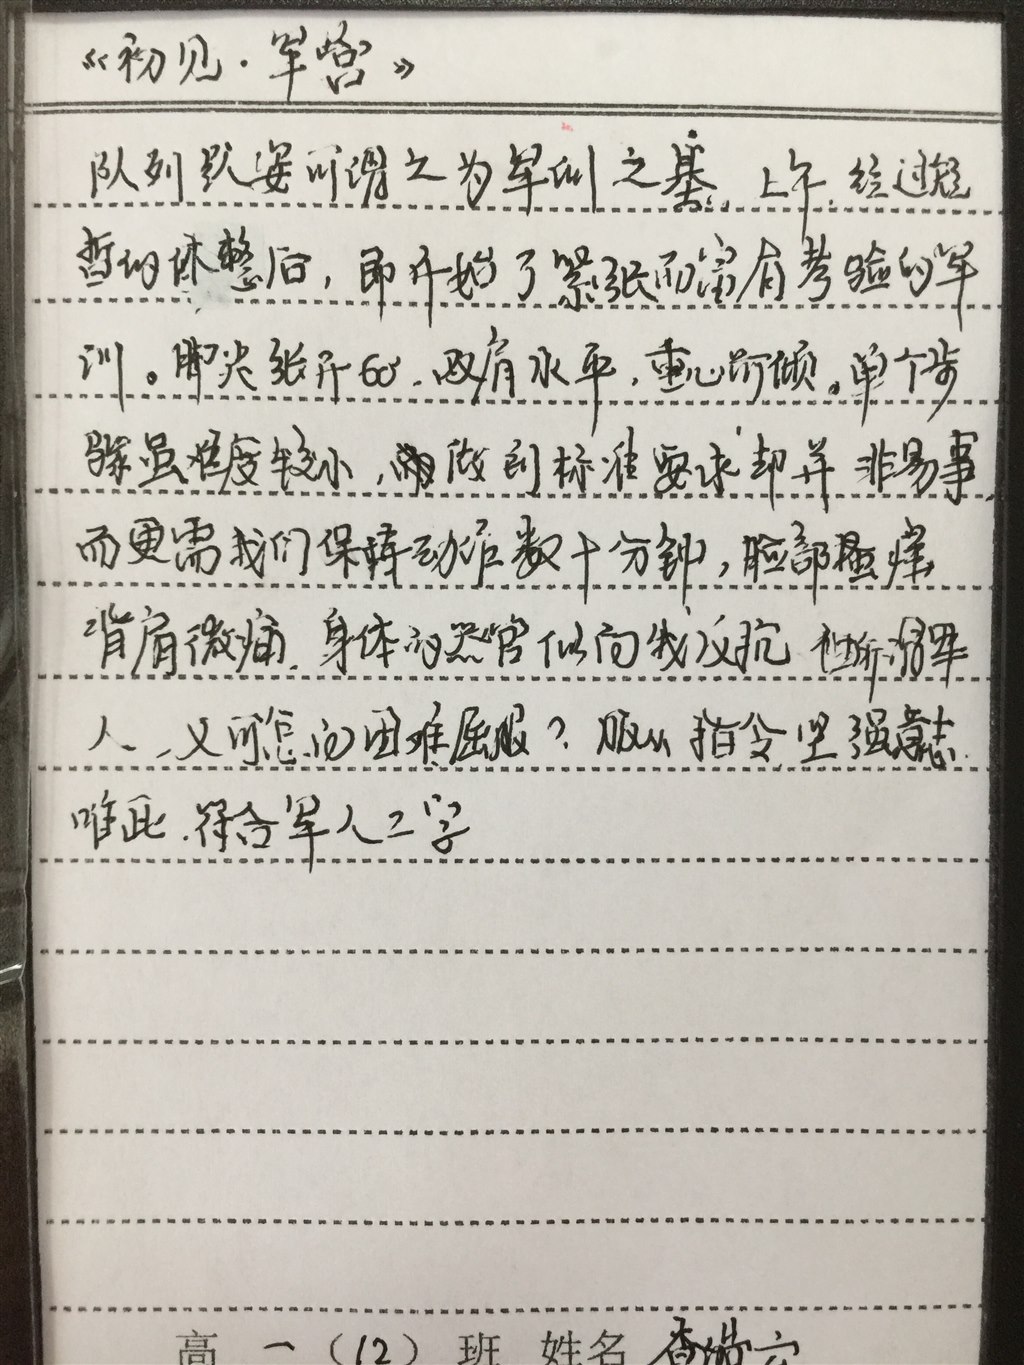 《初见·军营》
队列默姿可谓之为军训之基。上午,经过短
暂的休整后,即开始了紧张而富有考验的军
训。脚尖张开60°,双肩水平,重心前倾。单个步
骤虽难度较小,做到标准要求却并非易事,
而更需我们保障动作数十分钟,脸部搔痒,
背肩微痛,身体的器官似向我反抗
人,又可怎向困难屈服?服从指令,坚强意志,
唯此,符合军人二字
高一(12)班 姓名 查